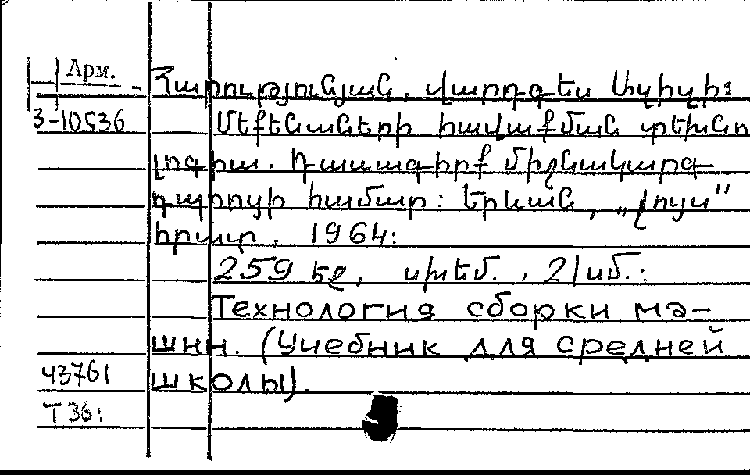 Арм.
Հարությունյան, Վարդգես
3-10536
Մեքենաների հավաքման տեխնո
լոգիա. Դասագիրք միջնակարգ
դպրոցի համար: Երևան, „Լույս"
հրատ., 1964:
259 էջ, սխեմ., 21սմ.:
Технология сборки ма-
шин. (Учебник для средней
43761 школы).
Т 36: